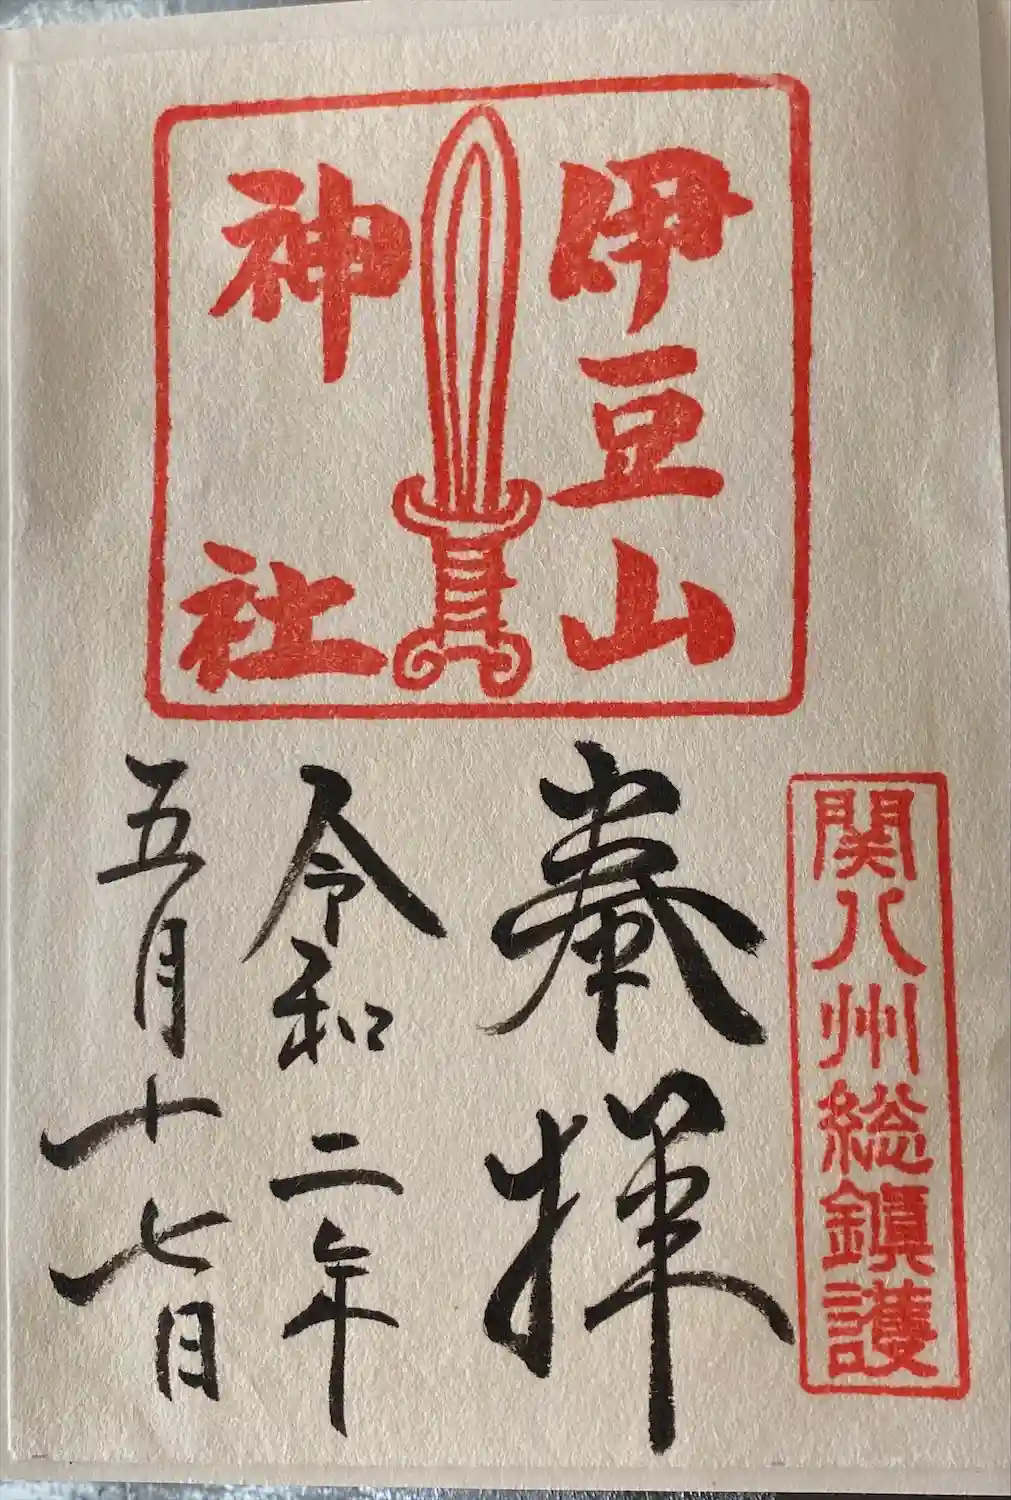 伊豆山
神社
関八州総鎮護
奉拝
令和二年
五月十七日